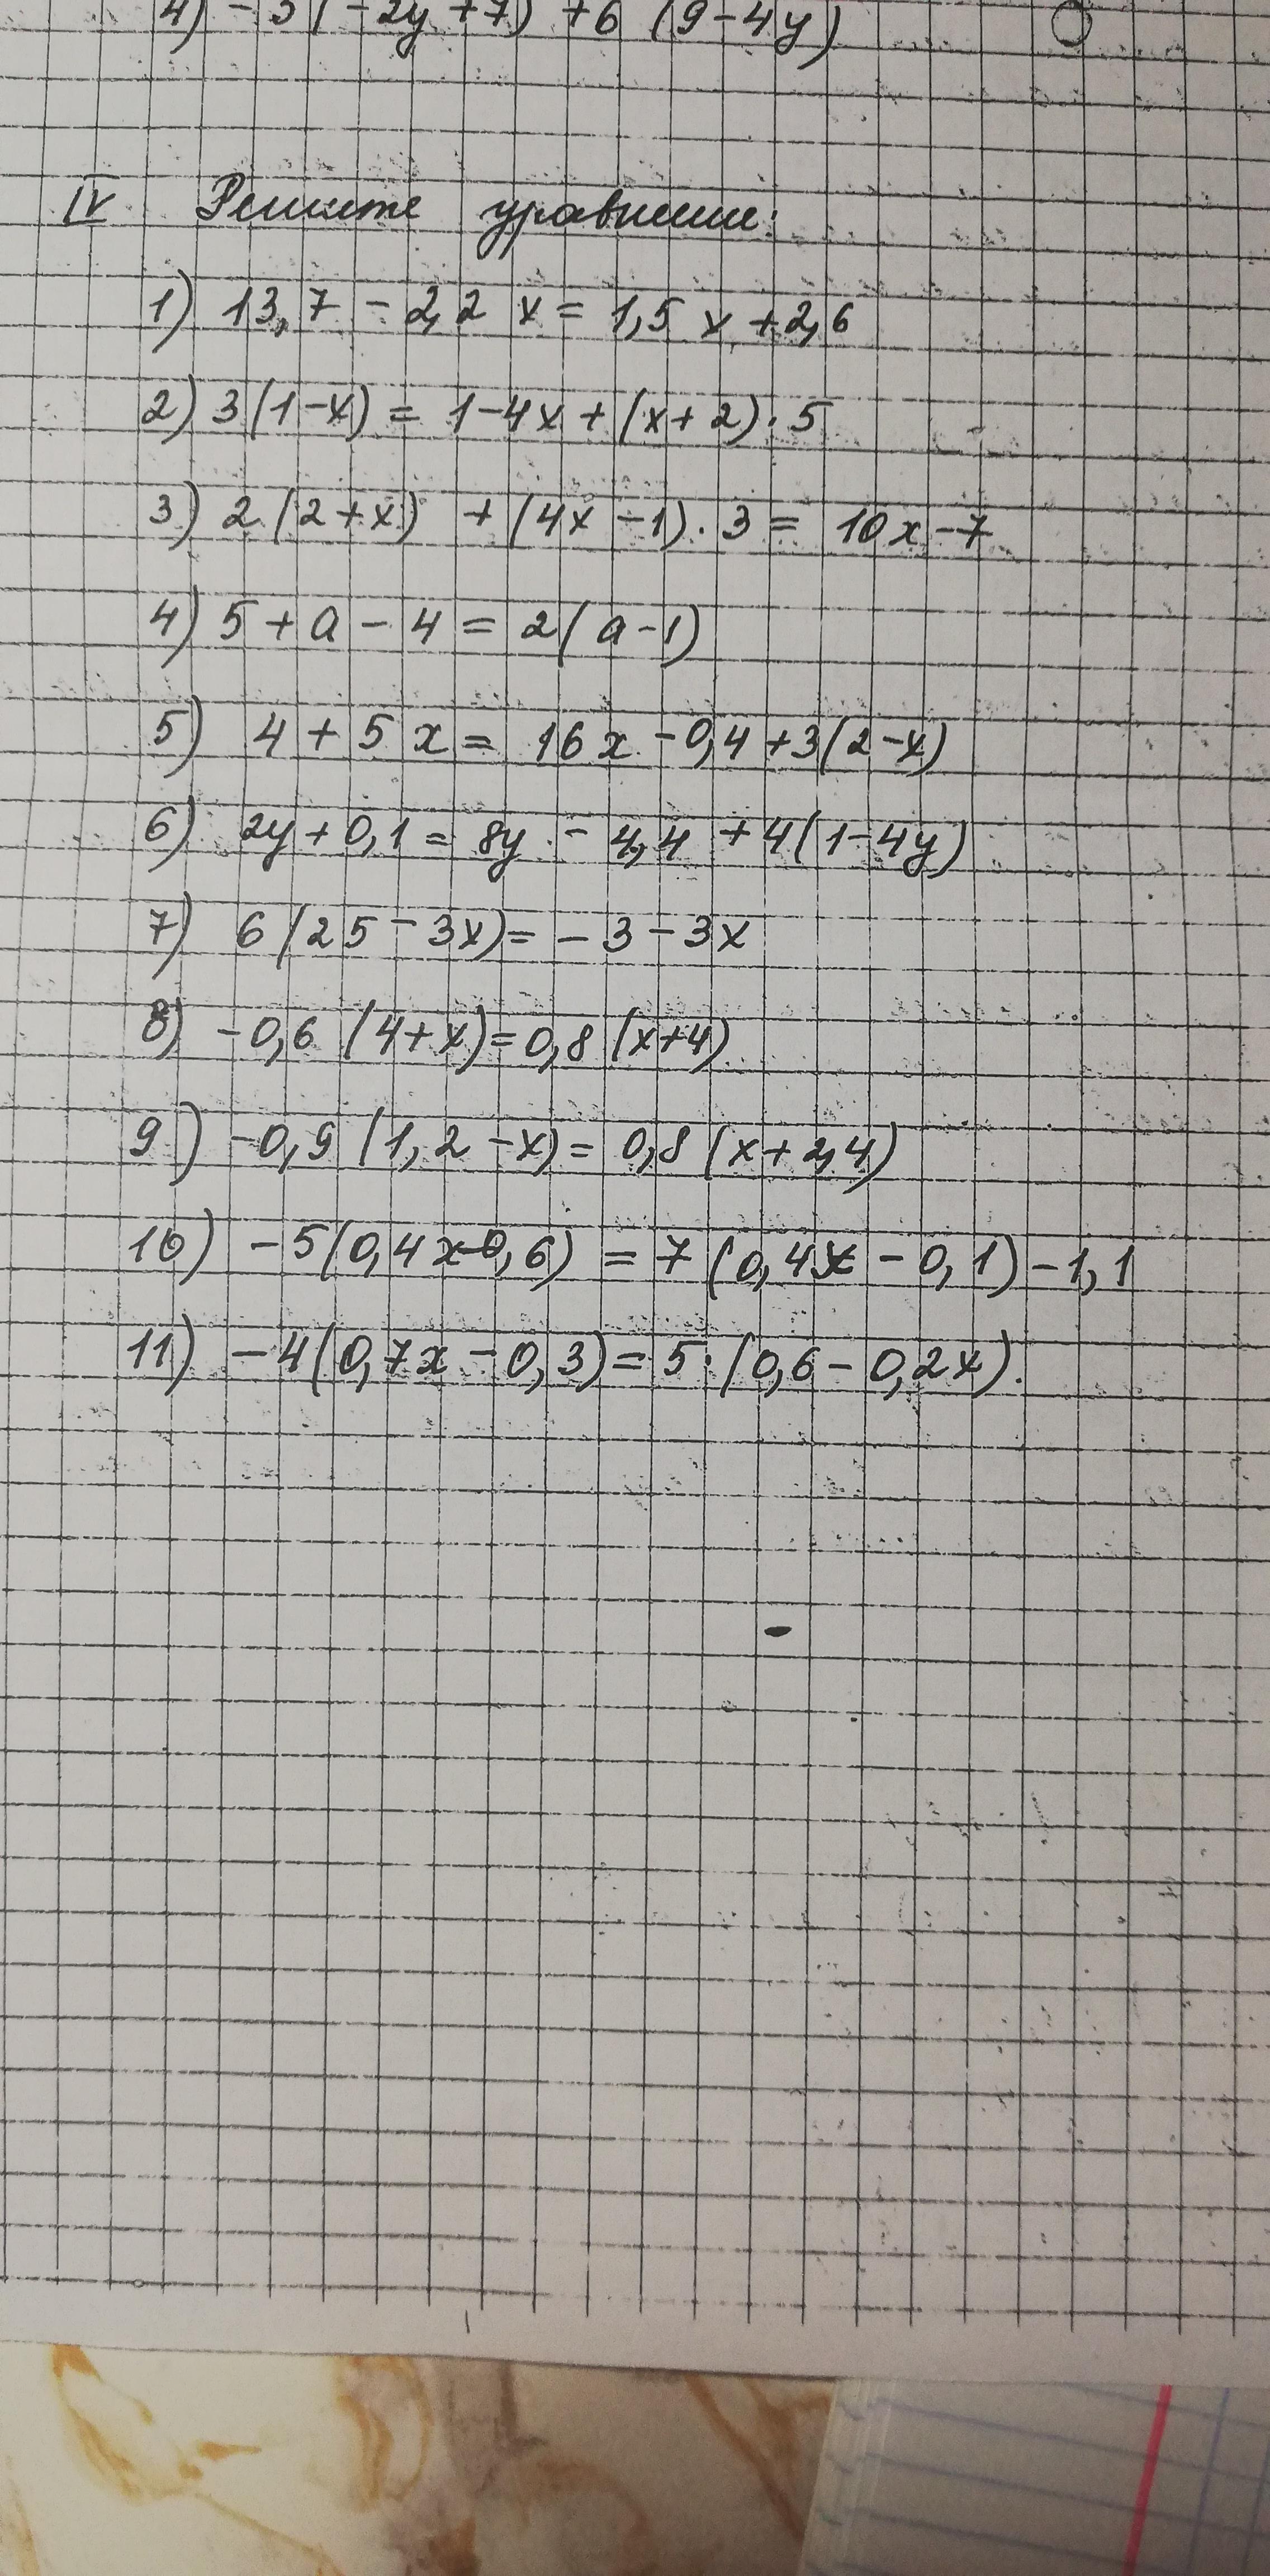 4) -5(-2y+7) +6 (9-4y)
IV Решите уравнение:
1) 13,7 - 2,2 x = 1,5 x + 2,6
2) 3(1-x) = 1-4x+(x+2)·5
3) 2(2+x) + (4x-1)·3 = 10x-7
4) 5+a-4 = 2(a-1)
5) 4+5x = 16x-0,4+3(2-x)
6) 2y+0,1 = 8y - 4,4 +4(1-4y)
7) 6(25-3x) = -3-3x
8) -0,6 (4+x) = 0,8 (x+4)
9) -0,9 (1,2-x) = 0,8 (x+2,4)
10) -5(0,4x-0,6) = 7(0,4x-0,1)-1,1
11) -4(0,7x-0,3) = 5·(0,6-0,2x).